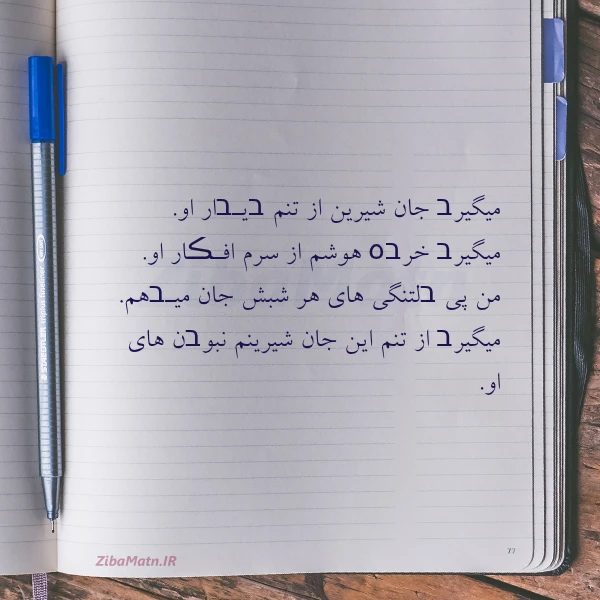 میگیرב جان شیرین از تنم בیـבار او.
میگیرב خرבه هوشم از سرم افـکار او.
من پی בلتنگی های هر شبش جان میـבهم.
میگیرב از تنم این جان شیرینم نبوבن های
او.
77
ZibaMatn.IR